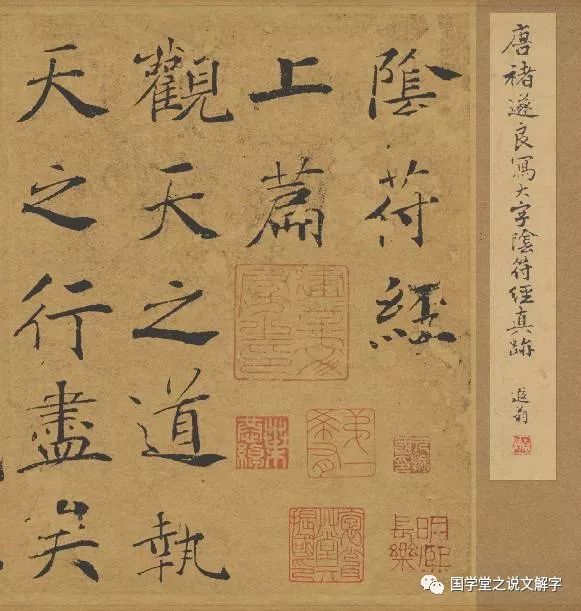 唐褚遂良寫大字陰符經真跡
遐翁
陰符經
上篇
觀天之道執
天之行盡矣
建業文房之印
国学堂之说文解字